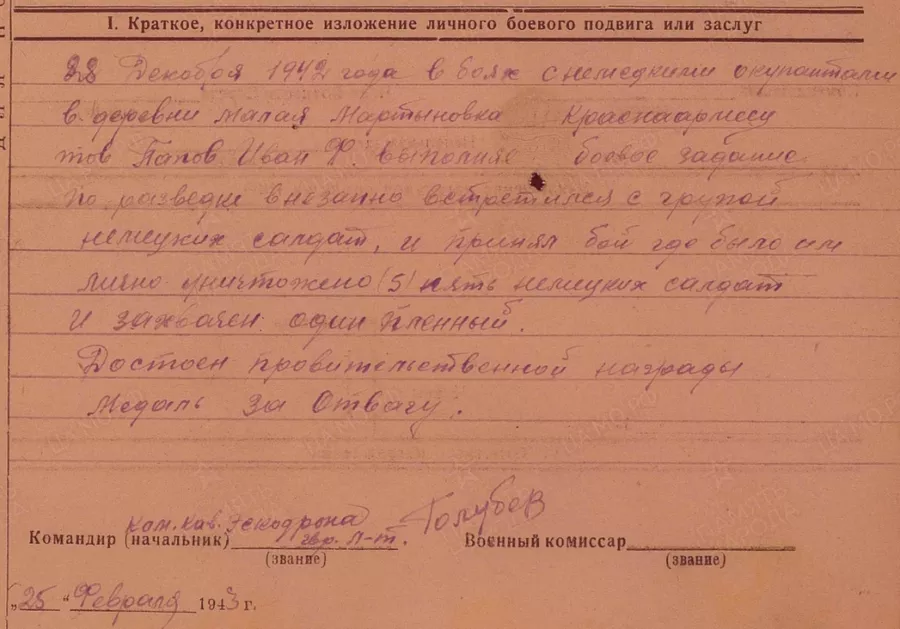 I. Краткое, конкретное изложение личного боевого подвига или заслуг
22 Декобря 1942 года в боях с немецкими окупантами
в деревни Малая Мартыновка Краснаармеец
тов Папов Иван Ф. выполняя боевое задание
по разведки внезапно встретился с групой
немецких салдат, и принял бой где было им
лично уничтожено (5) пять немицких салдат
и захвачен один пленный.
Достоен провительственной награды
Медаль За Отвагу.
Ком. Кав. Эскодрона Голубев
Командир (начальник) гвр. Л-т. Военный комиссар
(звание) (звание)
"25" Февраля 1943 г.